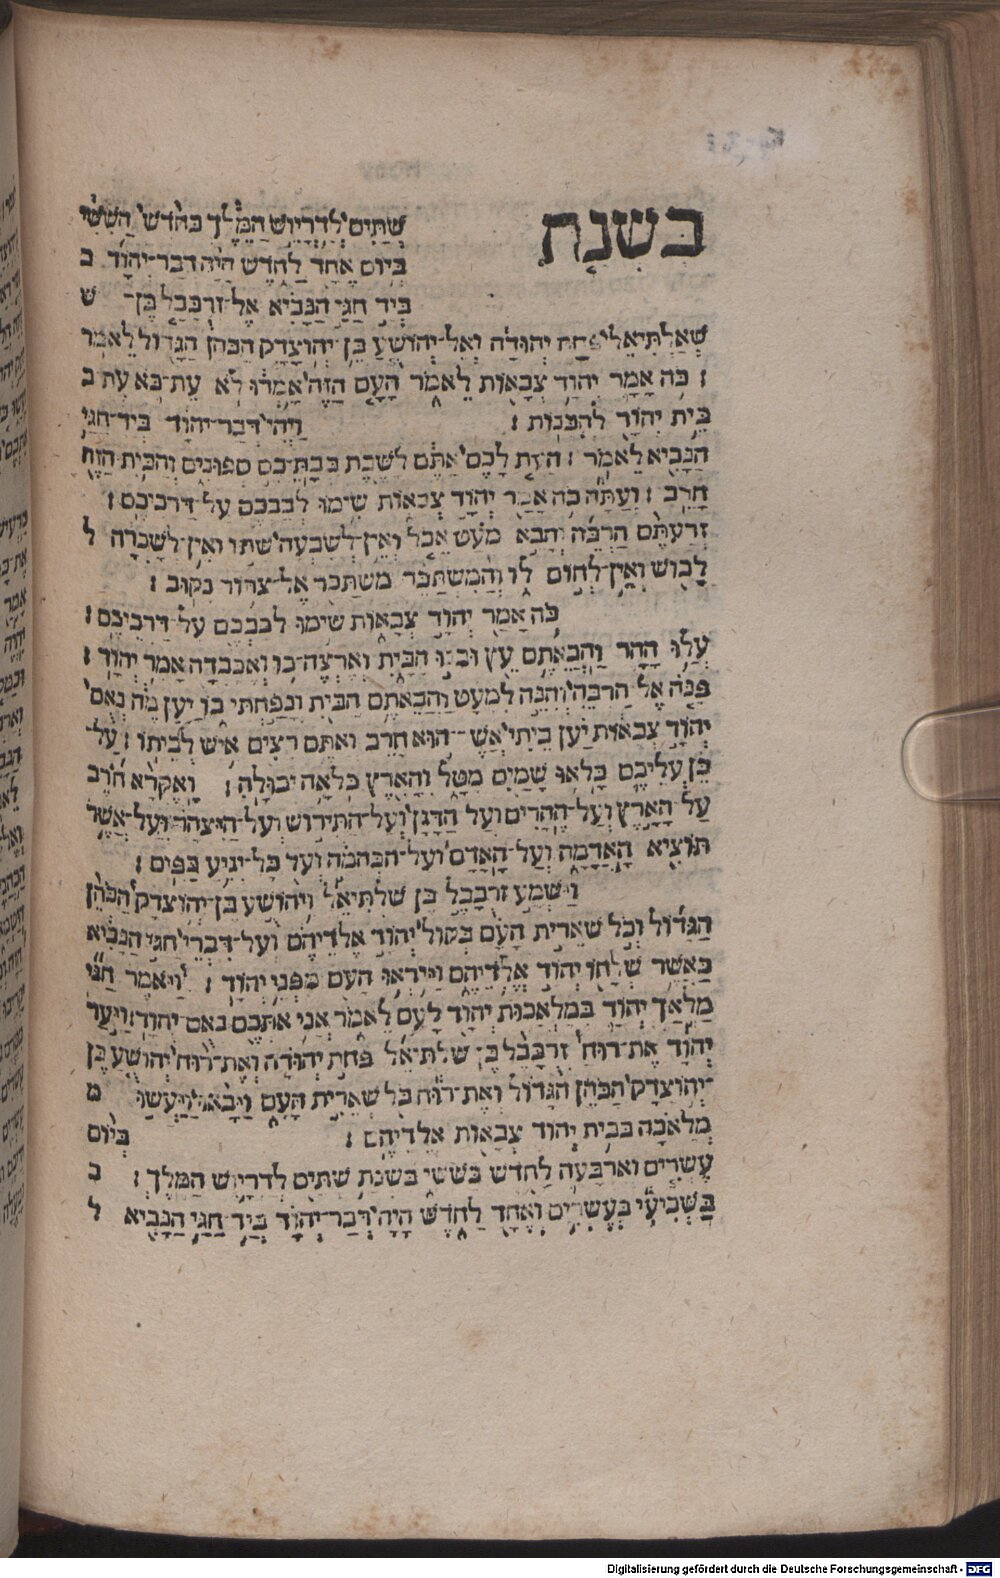 בשנת
שתים לדריוש המלך בחדש הששי
ביום אחד לחדש היה דבר יהוד ב
ביד חגי הנביא אל־זרבבל בן־ ש
שאלתיאל פחת יהודה ואל־יהושע בן יהוצדק הכהן הגדול לאמר
: כה אמר יהוד צבאות לאמר העם הזה אמרו לא עת־בא עת ב
בית יהוד להבנות : ויהי דבר־יהוד ביד־חגי
הנביא לאמר : העת לכם אתם לשבת בבתיכם ספונים והבית הזה
חרב : ועתה כה אמר יהוד צבאות שימו לבבכם על־דרכיכם :
זרעתם הרבה והבא מעט אכל ואין־לשבעה שתו ואין־לשכרה ל
לבוש ואין־לחום לו והמשתכר משתכר אל־צרור נקוב :
כה אמר יהוד צבאות שימו לבבכם על־דרכיכם :
עלו ההר והבאתם עץ ובנו הבית וארצה־בו ואכבדה אמר יהוד :
פנה אל־הרבה והנה למעט והבאתם הבית ונפחתי בו יען מה נאם
יהוד צבאות יען ביתי אשר־הוא חרב ואתם רצים איש לביתו : על־
כן עליכם כלאו שמים מטל והארץ כלאה יבולה : ואקרא חרב
על־הארץ ועל־ההרים ועל־הדגן ועל־התירוש ועל־היצהר ועל־אשר
תוציא האדמה ועל־האדם ועל־הבהמה ועל כל־יגיע כפים :
וישמע זרבבל בן שלתיאל ויהושע בן־יהוצדק הכהן
הגדול וכל שארית העם בקול יהוד אלדיהם ועל־דברי חגי הנביא
כאשר שלחו יהוד אלדיהם וייראו העם מפני יהוד : ויאמר חגי
מלאך יהוד במלאכות יהוד לעם לאמר אני אתכם נאם יהוד : ויער
יהוד את־רוח זרבבל בן־שלתיאל פחת יהודה ואת־רוח יהושע בן
יהוצדק הכהן הגדול ואת־רוח כל שארית העם ויבאו ויעשו מ
מלאכה בבית יהוד צבאות אלדיהם : ביום
עשרים וארבעה לחדש בששי בשנת שתים לדריוש המלך : ב
בשביעי בעשרים ואחד לחדש היה דבר־יהוד ביד־חגי הנביא ל
Digitalisierung gefördert durch die Deutsche Forschungsgemeinschaft - DFG